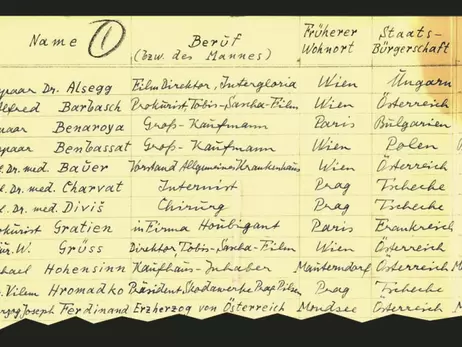 Name ① Beruf (bzw. des Mannes) Früherer Wohnort Staats-Bürgerschaft
Dr. Alsegg Filmdirektor, Intergloria Wien Ungarn
Alfred Barbasch Prokurist, Tobis-Sascha-Film Wien Österreich
Benaroya Groß-Kaufmann Paris Bulgarien
Benbassat Groß-Kaufmann Wien Polen
Dr. med. Bauer Vorstand Allgemeines Krankenhaus Wien Österreich
Dr. med. Charvat Internist Prag Tscheche
Dr. med. Diviš Chirurg Prag Tscheche
Gratien in Firma Houbigant Paris Frankreich
W. Grüss Direktor, Tobis-Sascha-Film Wien Österreich
Hohensinn Kaufhaus-Inhaber Mauterndorf Österreich
Vilem Hromadko Präsident, Skodawerke Prag Pilsen Prag Tscheche
Joseph Ferdinand Erzherzog von Österreich Mondsee Österreich